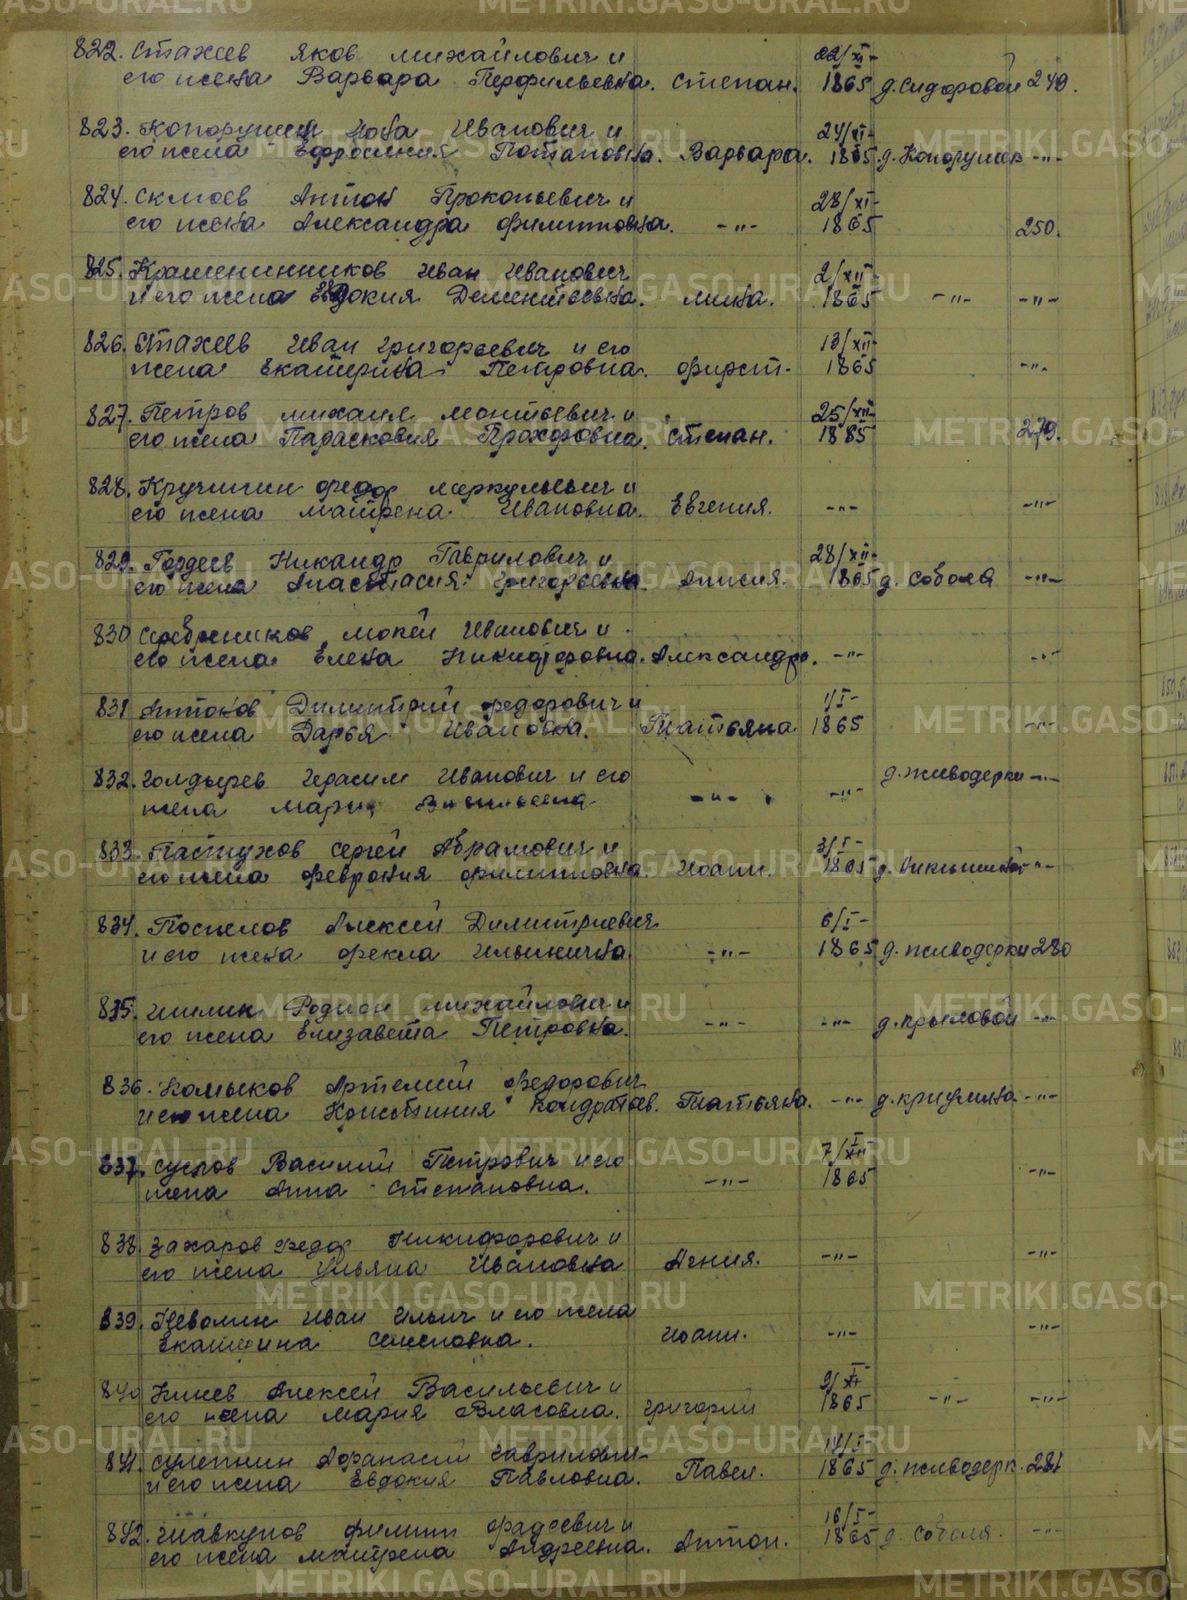 822. Стахеев Яков Михайлович и 22/XI-
его жена Варвара Перфильевна. Степан. 1865 д. Сидоровой 249.
823. Копорушкин Иван Иванович и 24/XI-
его жена Ефросиния Потаповна. Варвара. 1865 д. Копорушек -"-
824. Антон Прокопьевич и 28/XI-
его жена Александра Филипповна. -"- 1865 250.
825. Крашенинников Иван Иванович 2/XII-
и его жена Евдокия Дементьевна. 1865 -"- -"-
826. Стахеев Иван Григорьевич и его 13/XII-
жена Екатерина Петровна. Фирст. 1865 -"-
827. Петров Михаил Монтьевич и 25/XII-
его жена Парасковия Прохоровна. Степан. 1885 279.
828. Кручинин Федор Меркульевич и
его жена Матрена Ивановна. Евгения. -"- -"-
829. Гордеев Никандр Гаврилович и 28/XII-
его жена Анастасия Григорьевна. Анисия. 1865 д. Соболя -"-
830 Серебреников Мокей Иванович и
его жена Елена Никифоровна. Александр. -"- -"-
831 Антонов Димитрий Федорович и 1/I-
его жена Дарья Ивановна. Татьяна 1865 -"-
832. Голдырев Герасим Иванович и его д. Живодерки -"-
жена Мария Васильевна -"- -"-
833. Пастухов Сергей Абрамович и 3/I-
его жена Феврония Филипповна. Иоанн. 1865 д. -"-
834. Поспелов Алексей Димитриевич 6/I-
и его жена Фекла Ильинична. -"- 1865 д. Живодерки 280
835. Родион Михайлович и
его жена Елизавета Петровна. -"- -"- д. Крыловой -"-
836. Комыков Артемий Федорович
и его жена Кондратьев. Татьяна. -"- д. Кручинина -"-
837. Суслов Василий Петрович и его 7/I XII
жена Анна Степановна. -"- 1865 -"-
838. Захаров Федор Никифорович и
его жена Ульяна Ивановна Агния. -"- -"-
839. Неволин Иван Ильич и его жена
Екатерина Семеновна. Иоанн. -"- -"-
840 Алексей Васильевич и 9/I
его жена Мария Власовна. Григорий 1865 -"- -"-
841. Афанасий Гаврилович 14/I-
и его жена Евдокия Павловна. Павел. 1865 д. Живодерк. 281
842. Шавкунов Филипп Фадеевич и 16/I-
его жена Матрена Андреевна. Антон. 1865 д. Соболя. -"-
METRIKI.GASO-URAL.RU